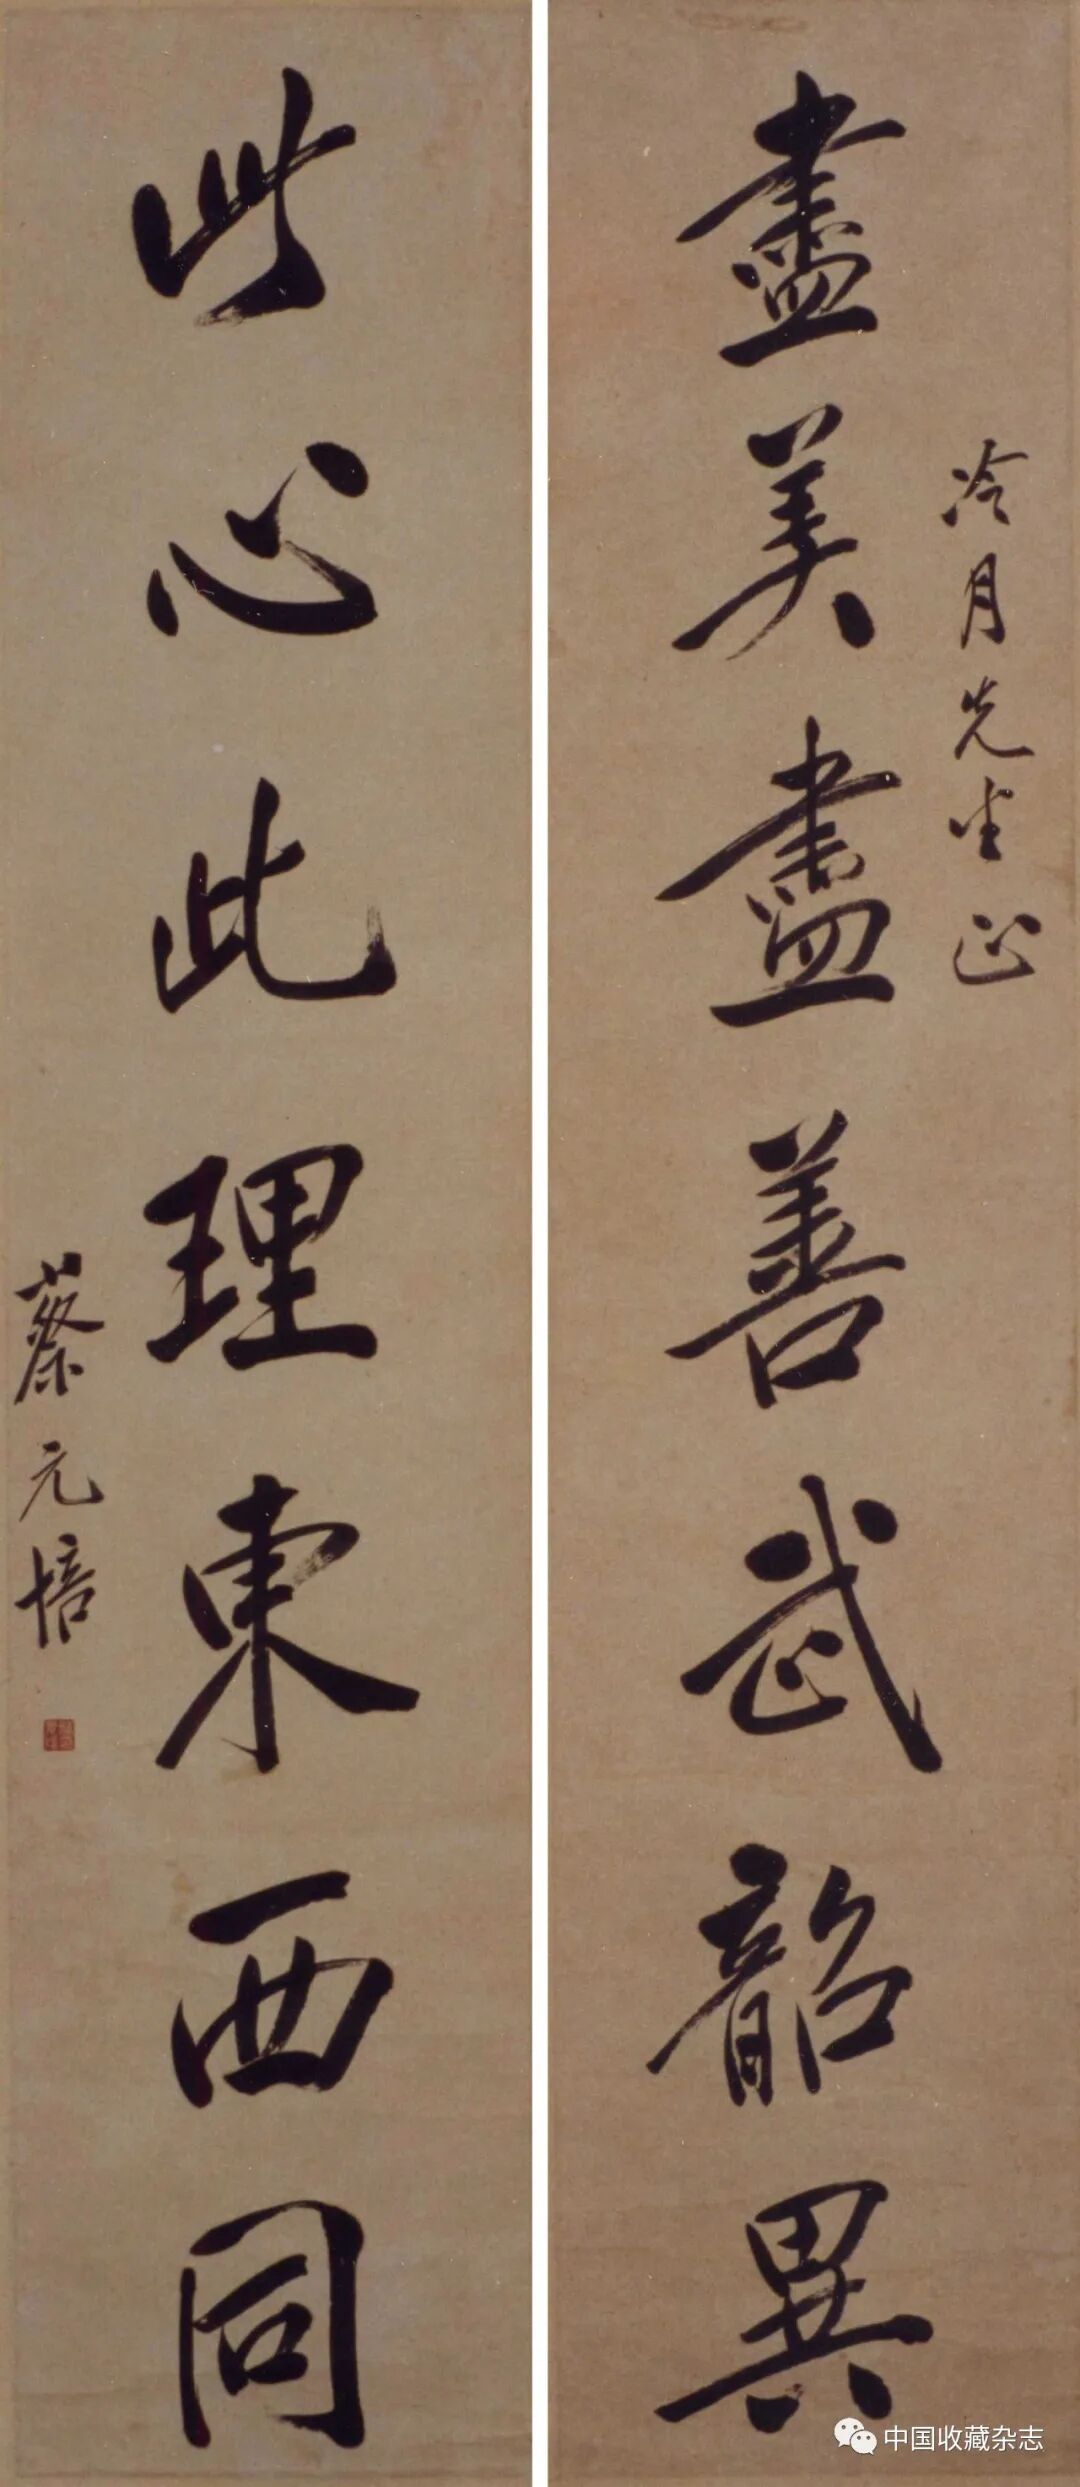 盡美盡善武韶異
冷月先生正
此心此理東西同
蔡元培
中国收藏杂志